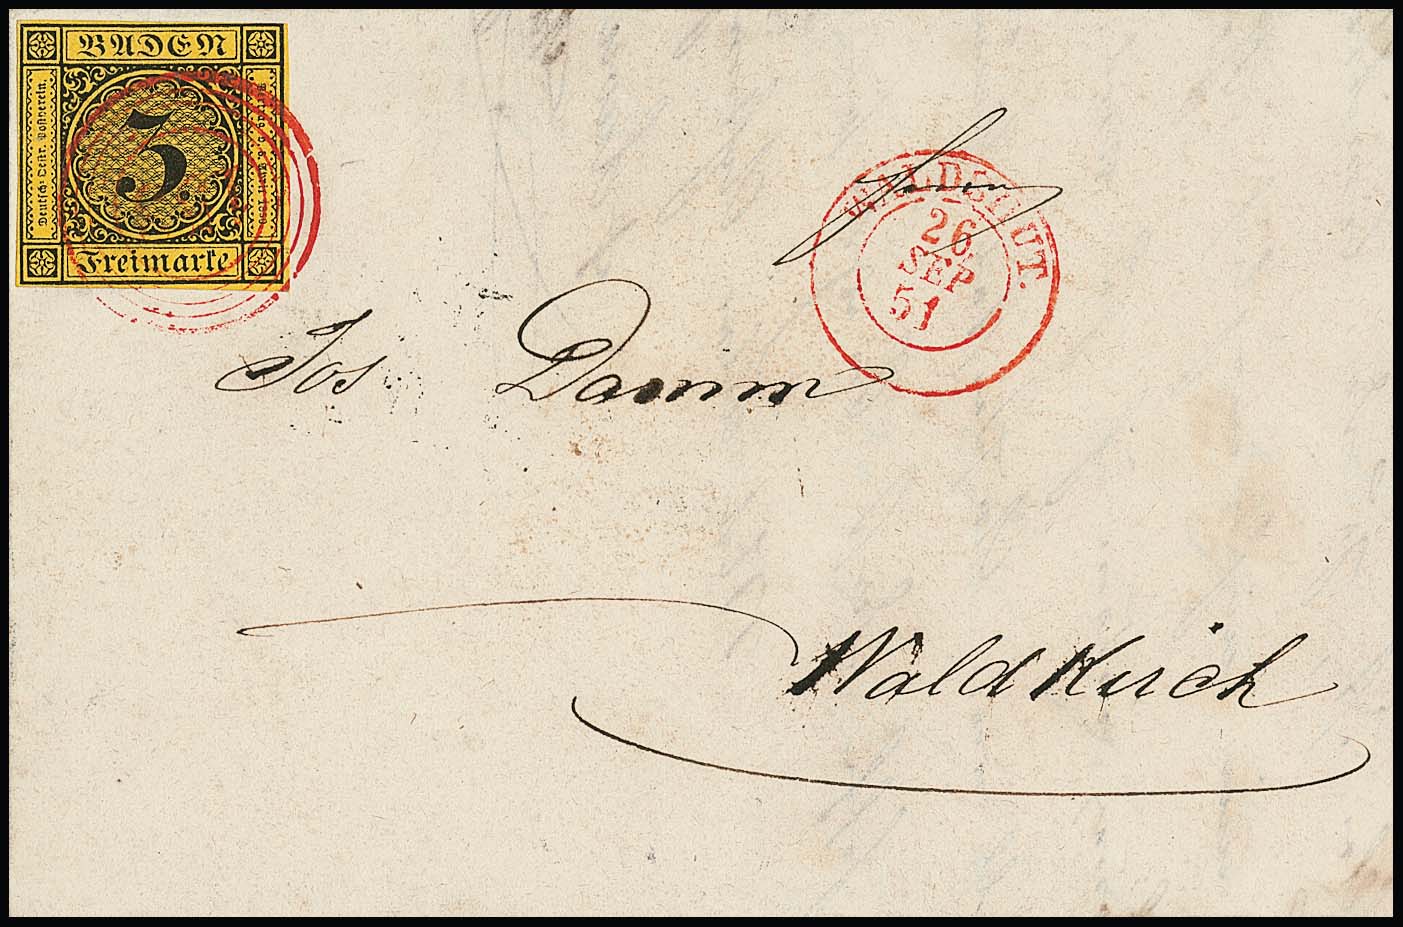 BADEN
Deutsch-Oestr. Postverein.
3.
Freimarke
WALDSHUT.
26
SEP
51
Herrn
Jos Damm
Waldkirch